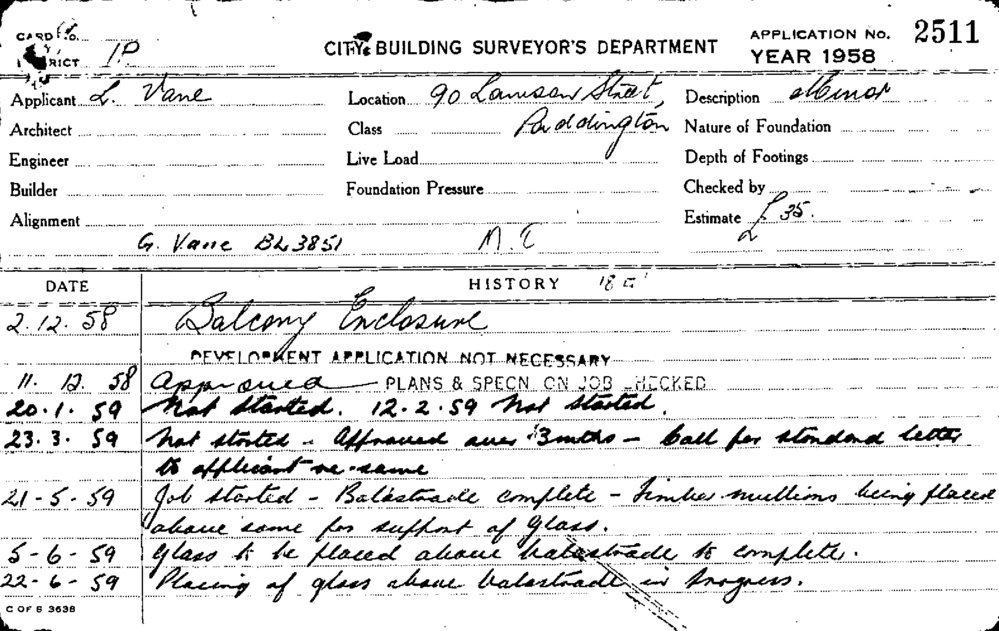 CARD No.
CITY BUILDING SURVEYOR'S DEPARTMENT
APPLICATION No. 2511
YEAR 1958
Applicant L. Vane Location 90 Lawson Street, Description Minor
Architect Class Paddington Nature of Foundation
Engineer Live Load Depth of Footings
Builder Foundation Pressure Checked by
Alignment Estimate £ 35.
G. Vane BL3851
DATE HISTORY
2.12.58 Balcony Enclosure
DEVELOPMENT APPLICATION NOT NECESSARY
11. 12. 58 Approved PLANS & SPECN. ON JOB CHECKED
20.1.59 Not Started. 12.2.59 Not Started.
23.3.59 Not started - Approved over 3mths - Call for standard letter
to applicant re same
21-5-59 Job started - Balastrade complete - Timber mullions being placed
above same for support of glass.
5-6-59 Glass to be placed above balastrade to complete.
22-6-59 Placing of glass above balastrade in progress.
C OF S 3638